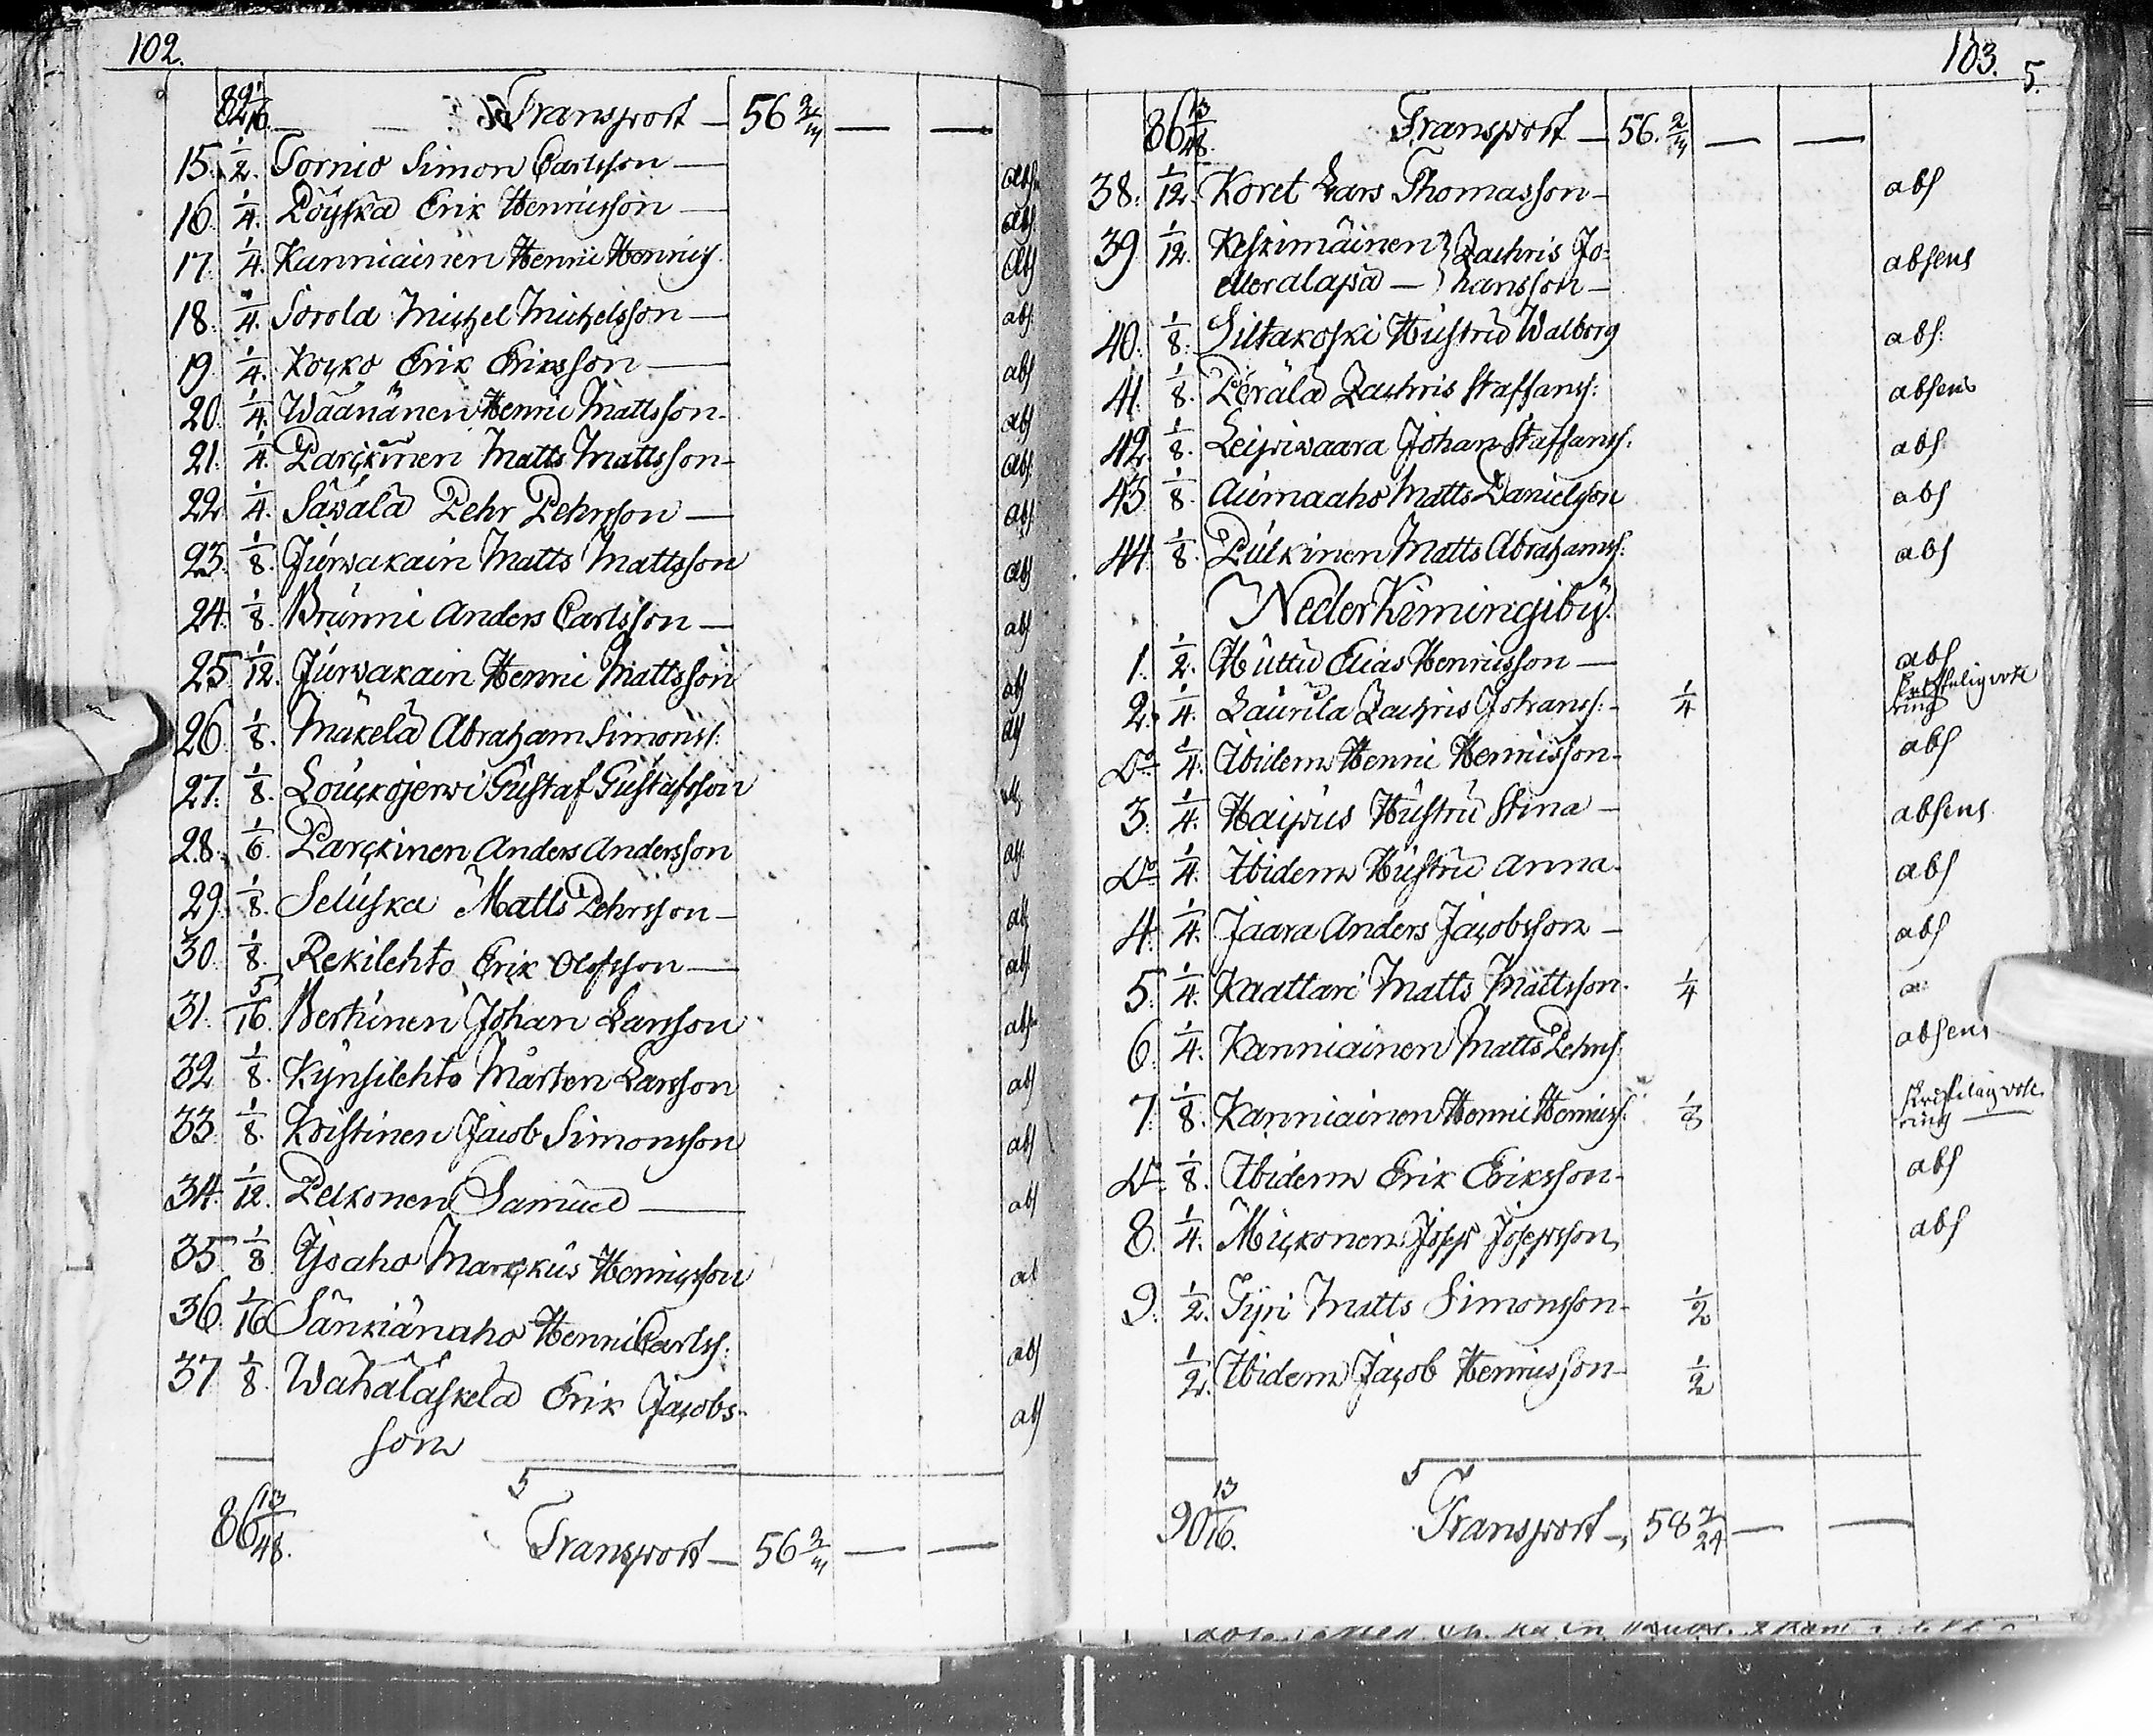 102.
82 9/16. Transport — 56 — —
15. 1/2. Tornio Simon Carlsson — abs
16. 1/4. Löyskä Erik Henricsson — abs
17. 1/4. Kanniainen Henric Henrics. abs
18. 1/4. Sorola Michel Michelsson — abs:
19. 1/4. Kocko Erik Eriksson — abs
20. 1/4. Wäänänen Henric Mattsson. abs
21. 1/4. Parckinen Matts Mattsson — abs:
22. 1/4. Säwälä Pehr Pehrsson — abs.
23. 1/8. Jurwakain Matts Mattsson abs
24. 1/8. Brunni Anders Carlsson — abs
25. 1/12. Jurwakain Henric Mattsson abs
26. 1/8. Mäkelä Abraham Simonss: abs
27. 1/8. Louckojerwi Gustaf Gustafsson
28. 1/6. Parckinen Anders Andersson abs.
29. 1/8. Seluska Matts Pehrsson — abs
30. 1/8. Rekilehto Erik Olofsson — abs
31. 5/16. Bertunen Johan Larsson abs
32. 1/8. Kynsilehto Mårten Larsson abs
33. 1/8. Kristinen Jacob Simonsson abs
34. 1/12. Pelkonen Samuel — abs
35. 1/8. Isoaho Marckus Henricsson ab
36. 1/16 Sänkiänaho Henric Carlss: abs
37. 1/8. Wähälaskela Erik Jacobs-
son abs
86 13/48. Transport — 56 — —
103.
5.
86 13/48. Transport — 56. — —
38. 1/12. Koret Lars Thomasson — abs
39 1/12. Keskimäinen } Zachris Jo=
eller alapä — } hansson — absens
40. 1/8. Siltakoski Hustru Walborg abs:
41. 1/8. Perälä Zachris Staffanss: absens
42. 1/8. Leipiwaara Johan Staffanss: abs:
43 1/8. Aumaaho Matts Danielsson abs
44. 1/8. Pulkinen Matts Abrahamss: abs
Neder Kimingi by.
1. 1/2. Huttu Elias Henricsson — abs
2. 1/4. Laurila Zachris Johanss: — 1/4 vote
ring
Do 1/4. Ibidem Henric Henricsson — abs
3. 1/4. Haipus Hustru Stina — absens
Do 1/4. Ibidem Hustru Anna. abs
4. 1/4. Jaara Anders Jacobsson — abs
5. 1/4. Kaattari Matts Mattsson. 1/4
6. 1/4. Kanniainen Matts Pehrs. absens
7. 1/8. Kanniainen Henric Henricss: 1/8 vote
ring
Do 1/8. Ibidem Erik Eriksson — abs
8. 1/4. Mickonen Joseph Josephsson abs
9. 1/2. Typi Matts Simonsson — 1/2
1/2. Ibidem Jacob Henricsson — 1/2
90 13/16. Transport — 58 7/24 — —